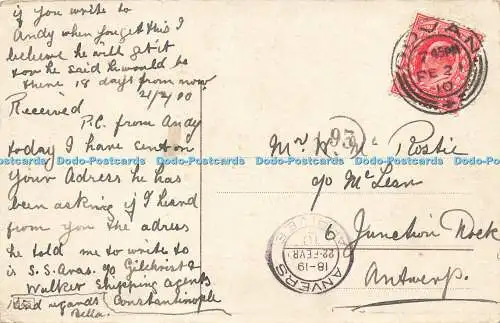 if you write to
Andy when you get this I
believe he will get it
for he said he would be
there 18 days from now
21/2/10
Received
P.C. from Andy
today I have sent on
Your Adress he has
been asking if I heard
from you the adress
he told me to write to
is S.S. Avas. c/o Gilchrist &
Walker Shipping Agents
Constantinople
Kind regards
Bella.
GIRVAN
7 45PM
FE 2
10
93
Mr W. Mc Rostie
c/o McLean
6 Junction Dock
Antwerp.
ANVERS
18-19
22-FEVR
10
Dodo-Postcards Dodo-Postcards Dodo-Postcards Dodo-Postcards